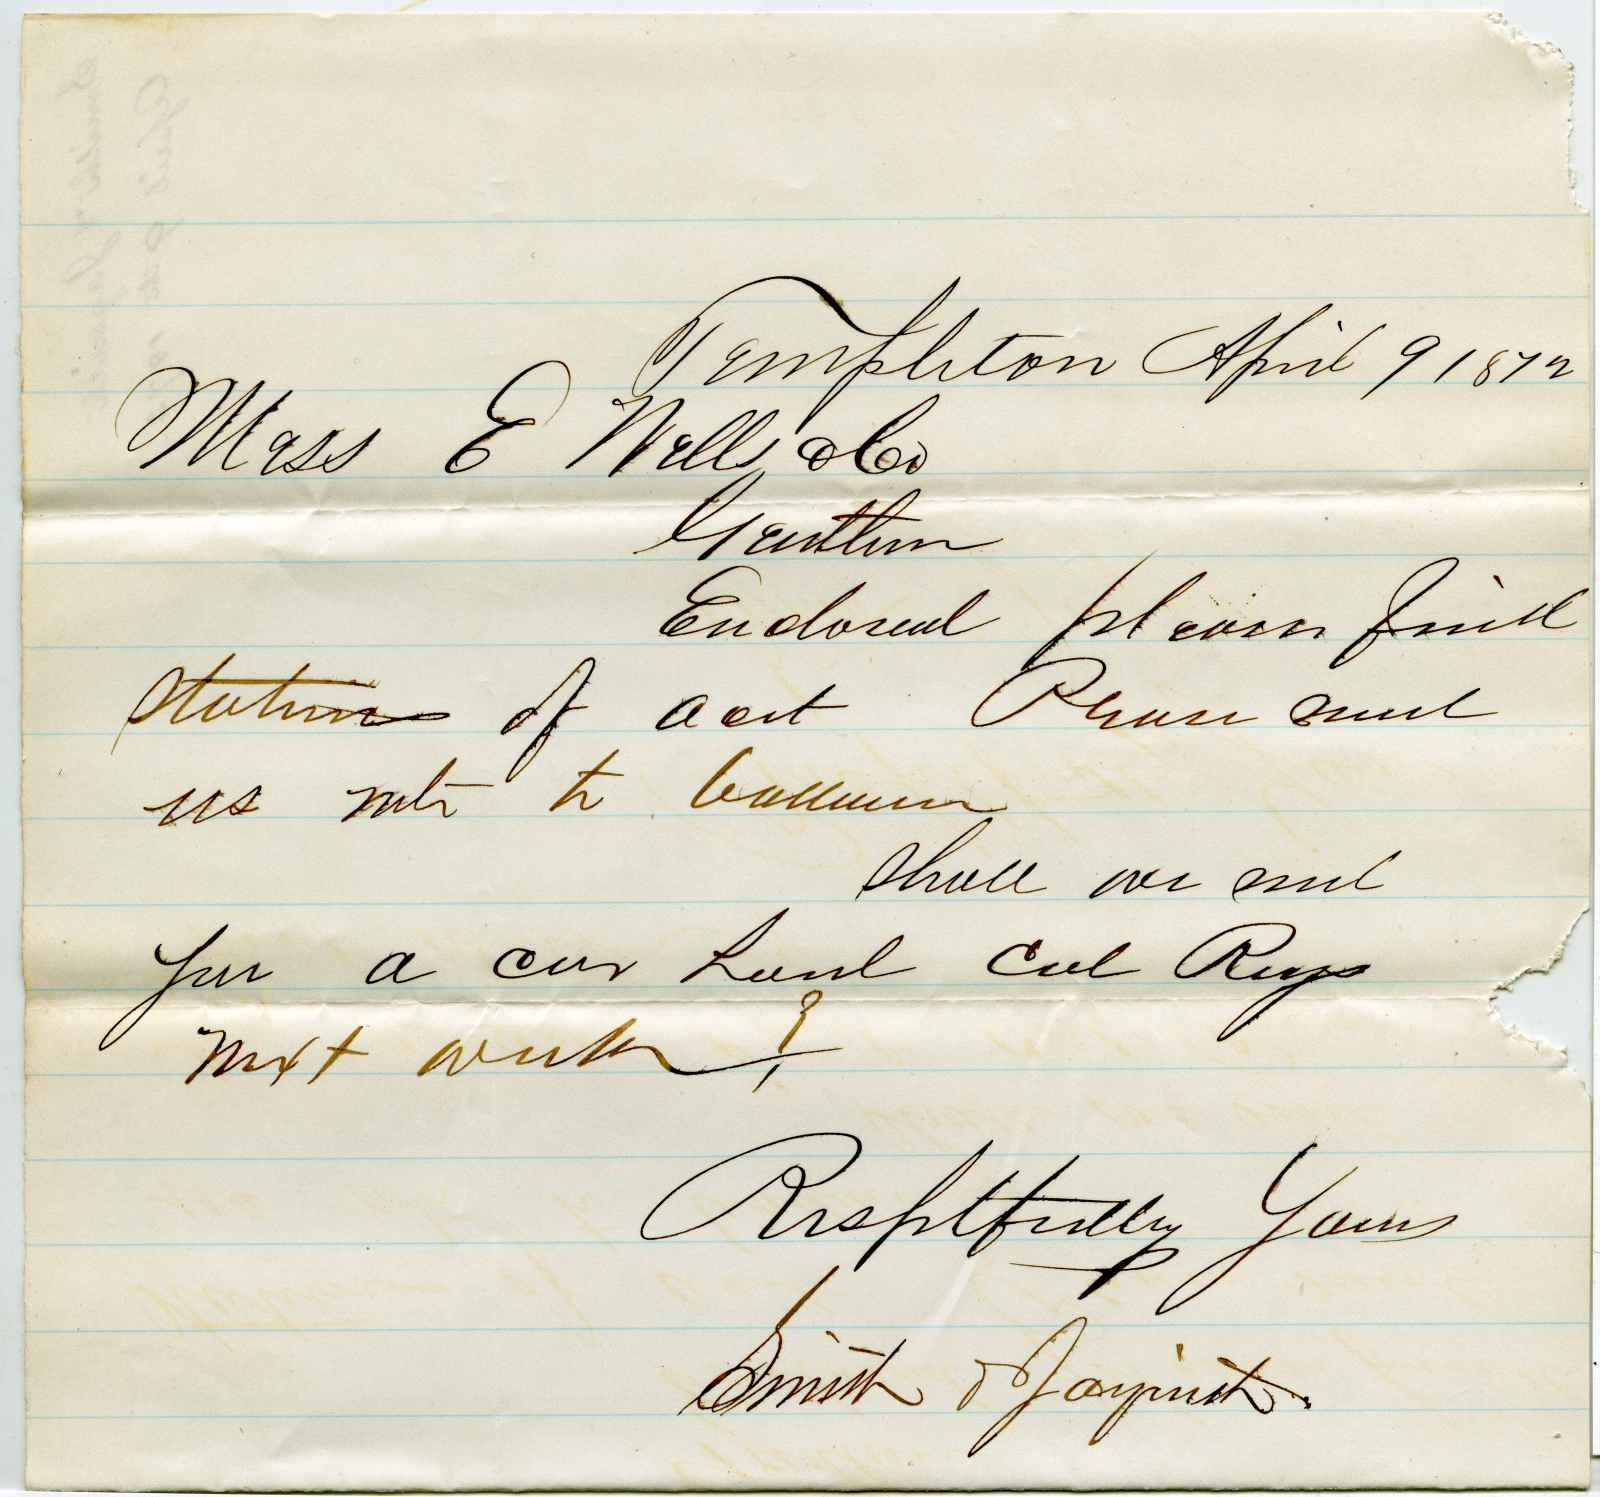 Templeton April 9 1872
Mess E Wells & Co
Gentlem
Enclosed please find
statem of acct Please send
us note to ballance
Shall we send
you a car load Col Rags
next week?
Resptfully Yours
Smith &